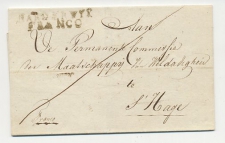 FRANCO
Aan
De Permanente Commissie
der Maatschappy van Weldadigheid
te
S'Hage